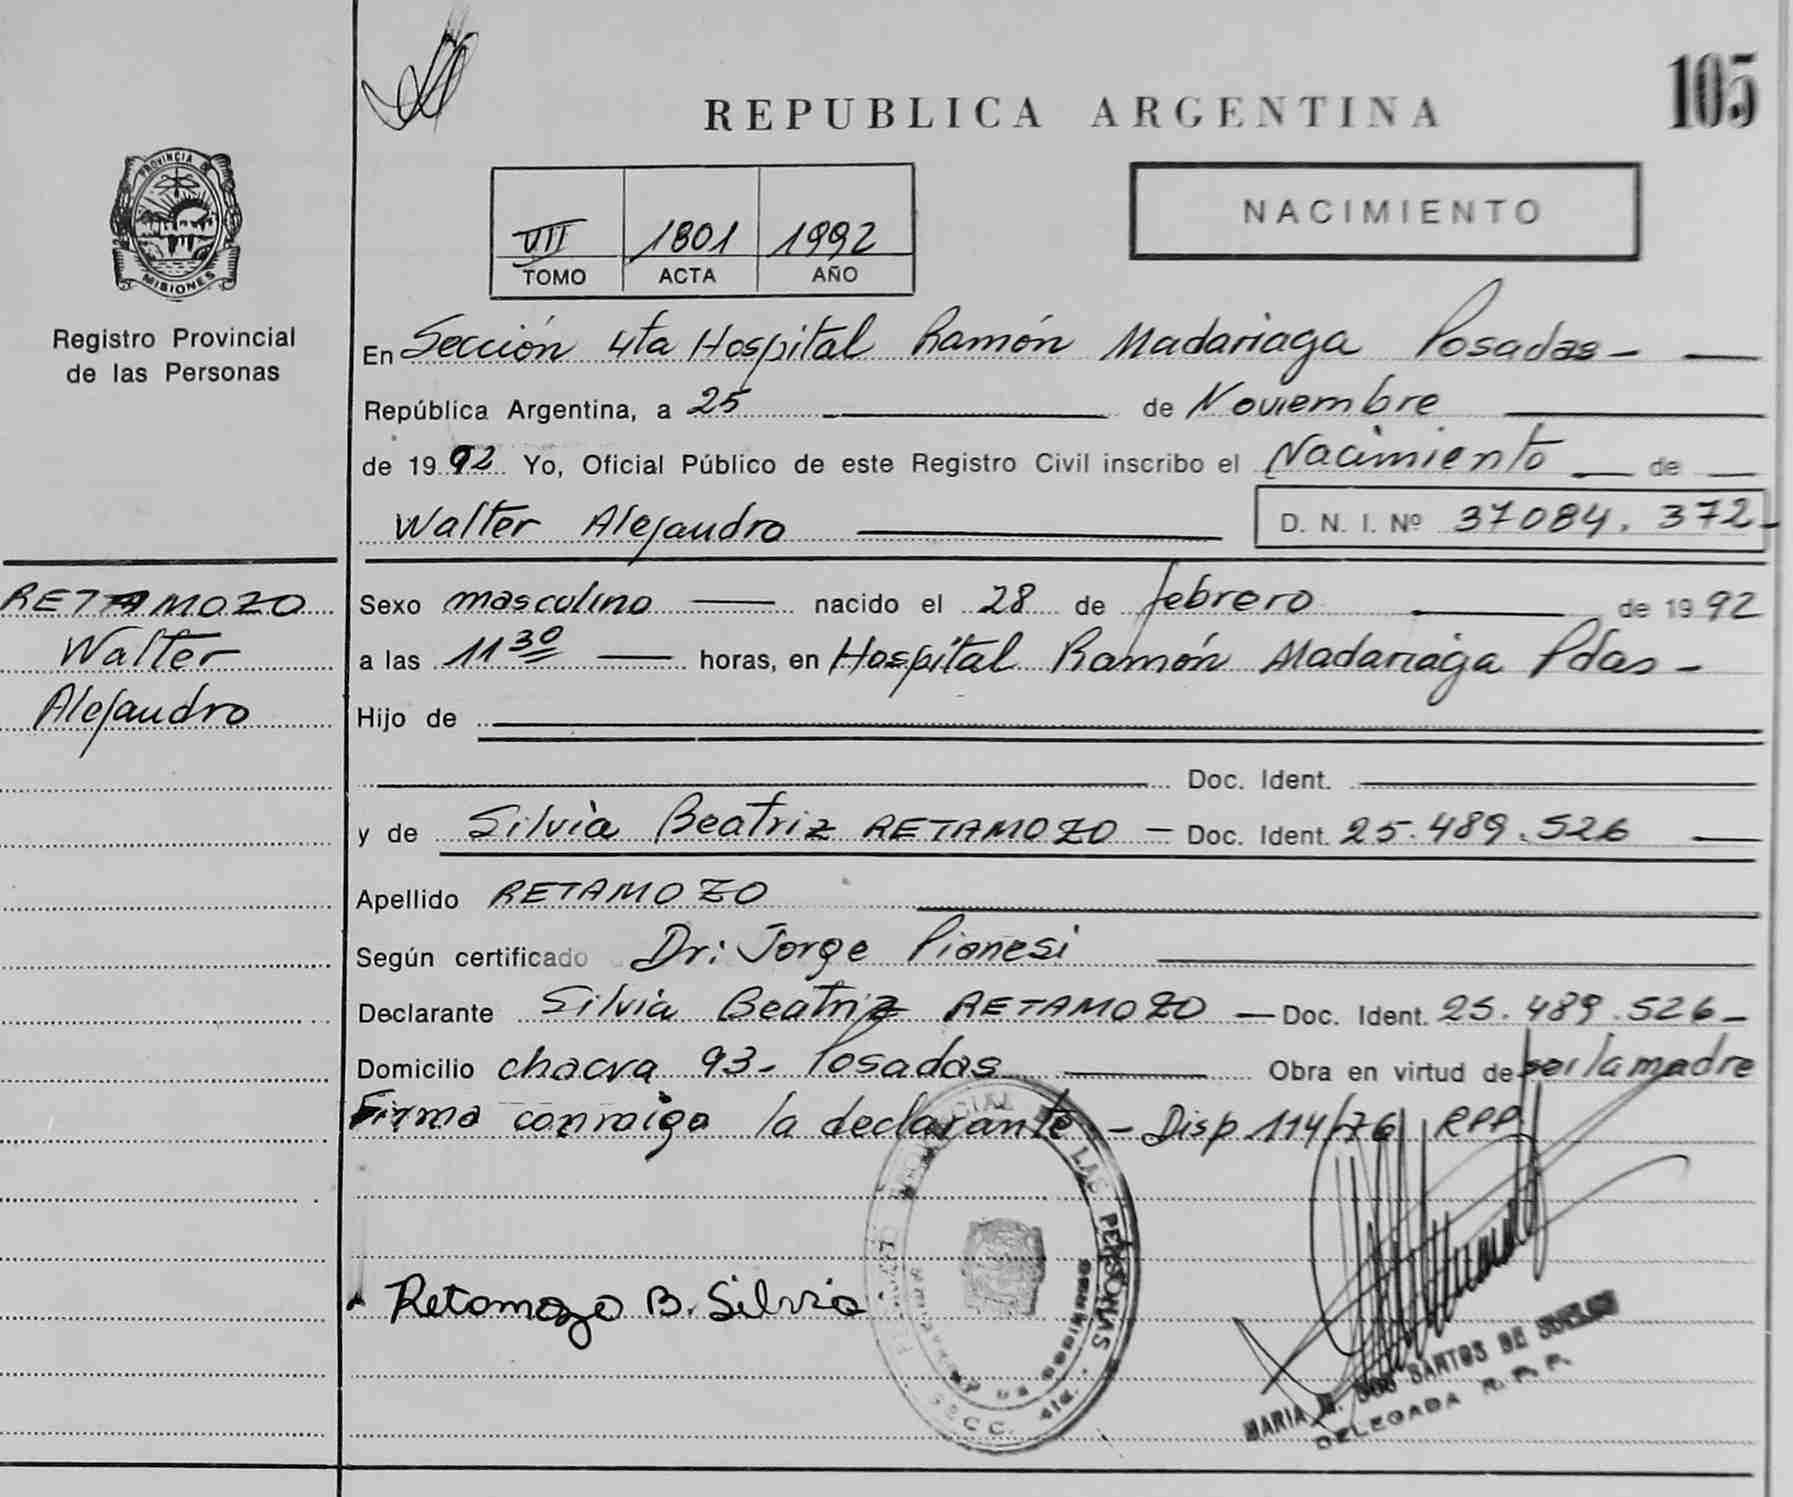 105
REPUBLICA ARGENTINA
PROVINCIA DE
MISIONES
Registro Provincial
de las Personas
VII 1801 1992
TOMO ACTA AÑO
NACIMIENTO
En Sección 4ta Hospital Ramón Madariaga Posadas —
República Argentina, a 25 de Noviembre
de 1992 Yo, Oficial Público de este Registro Civil inscribo el Nacimiento de
Walter Alejandro D. N. I. Nº 37084.372-
RETAMOZO
Walter
Alejandro
Sexo masculino — nacido el 28 de febrero de 1992
a las 11 30 — horas, en Hospital Ramón Madariaga Pdas -
Hijo de
Doc. Ident.
y de Silvia Beatriz RETAMOZO — Doc. Ident. 25.489.526
Apellido RETAMOZO
Según certificado Dr: Jorge Pianesi
Declarante Silvia Beatriz RETAMOZO — Doc. Ident. 25.489.526-
Domicilio chacra 93- Posadas Obra en virtud de ser la madre
Firma conmigo la declarante - Disp 114/76 RPP
Retamozo B. Silvia
LAS PERSONAS
SECC.
MARIA DOS SANTOS DE
DELEGADA R. P. P.